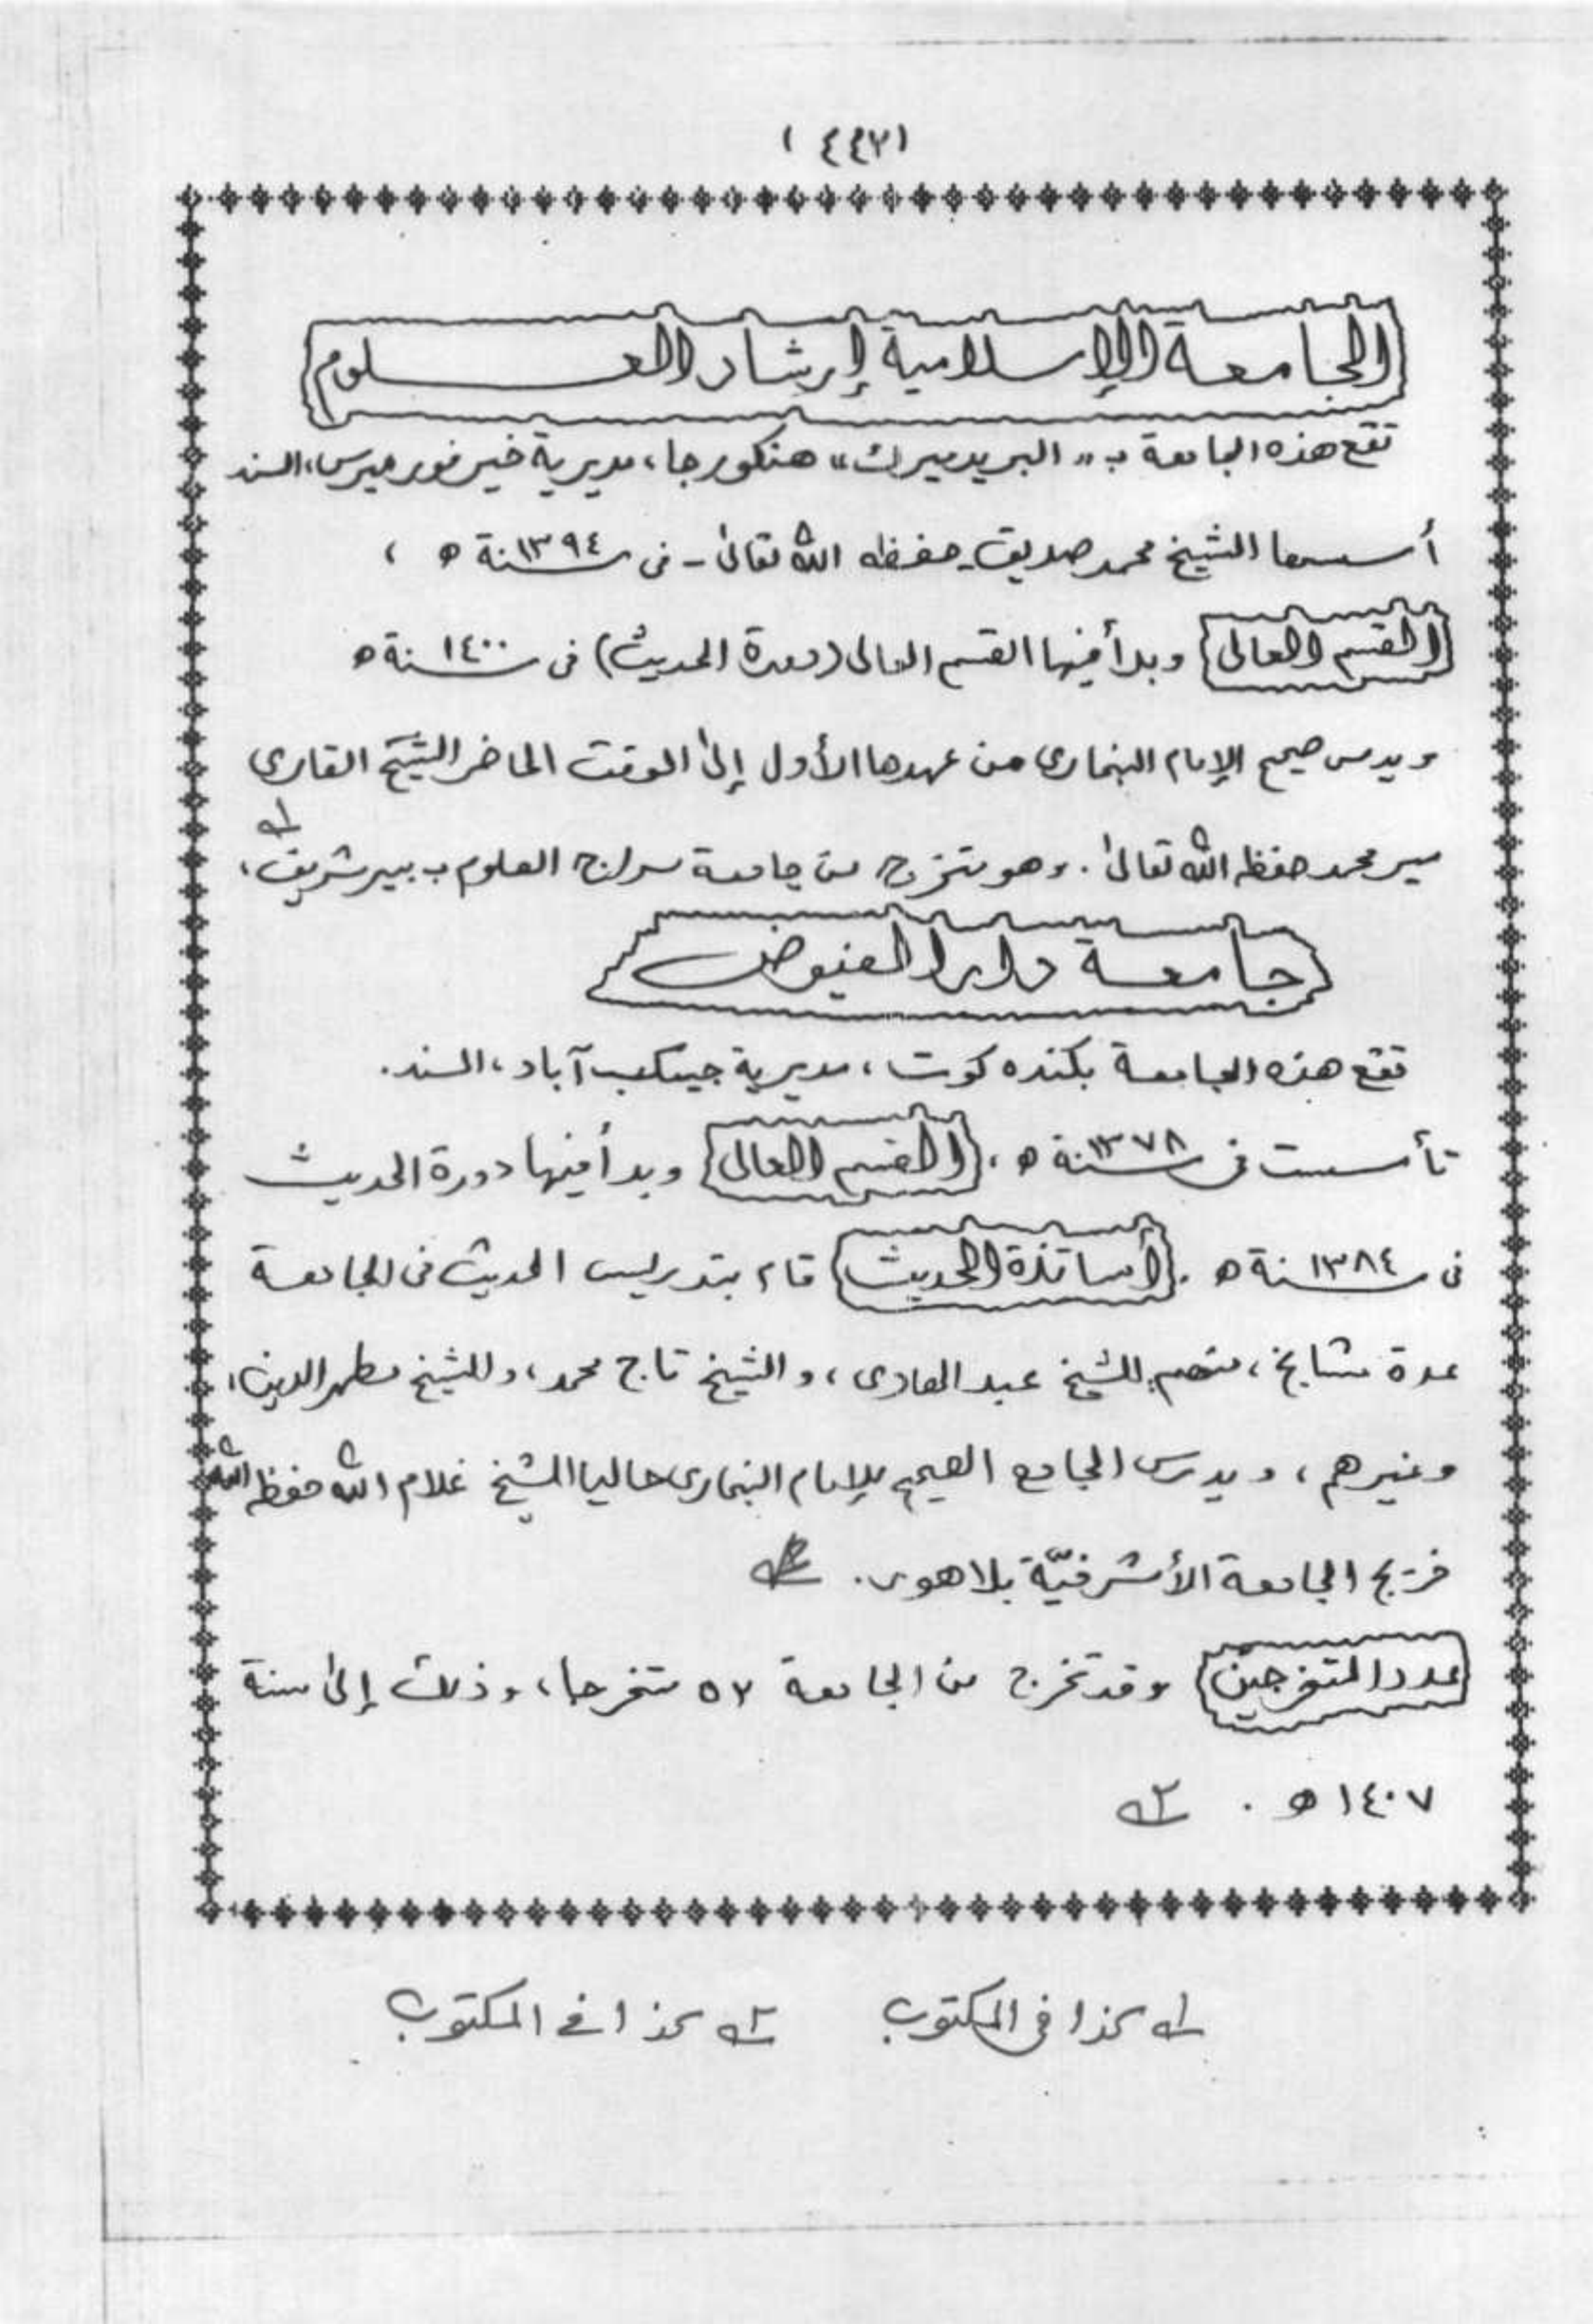 (٤٤٧)
الجامعة الإسلامية إرشاد العلوم
تقع هذه الجامعة ب «البريد ميرك» هنكورجا، مديرية خير فور ميرس، السند
أسسها الشيخ محمد صديق - حفظه الله تعالىٰ - فى سنة ١٣٩٤ ه ،
القسم العالى وبدأ فيها القسم العالى (دورة الحديث) فى سنة ١٤٠٠ ه
ويدرس صحيح الإمام البخارى من عهدها الأول إلىٰ الوقت الحاضر الشيخ القارى
مير محمد حفظه الله تعالىٰ . وهو متخرج من جامعة سراج العلوم ب بيرشريف، ١ـ
جامعة دار الفيوض
تقع هذه الجامعة بكنده كوت ، مديرية جيكب آباد ، السند .
تأسست فى سنة ١٣٧٨ ه ، القسم العالى وبدأ فيها دورة الحديث
فى سنة ١٣٨٤ ه . أساتذة الحديث قام بتدريس الحديث فى الجامعة
عدة مشايخ ، منهم الشيخ عبد الهادى ، و الشيخ تاج محمد ، والشيخ مطهر الدين ،
وغيرهم ، ويدرس الجامع الصحيح للإمام البخارى حاليا الشيخ غلام الله حفظه الله
خريج الجامعة الأشرفيّة بلاهور .
عدد المتخرجين وقد تخرج من الجامعة ٥٧ متخرجا ، وذلك إلىٰ سنة
١٤٠٧ ه . ٢ـ
١ـ كذا فى المكتوب ٢ـ كذا فى المكتوب